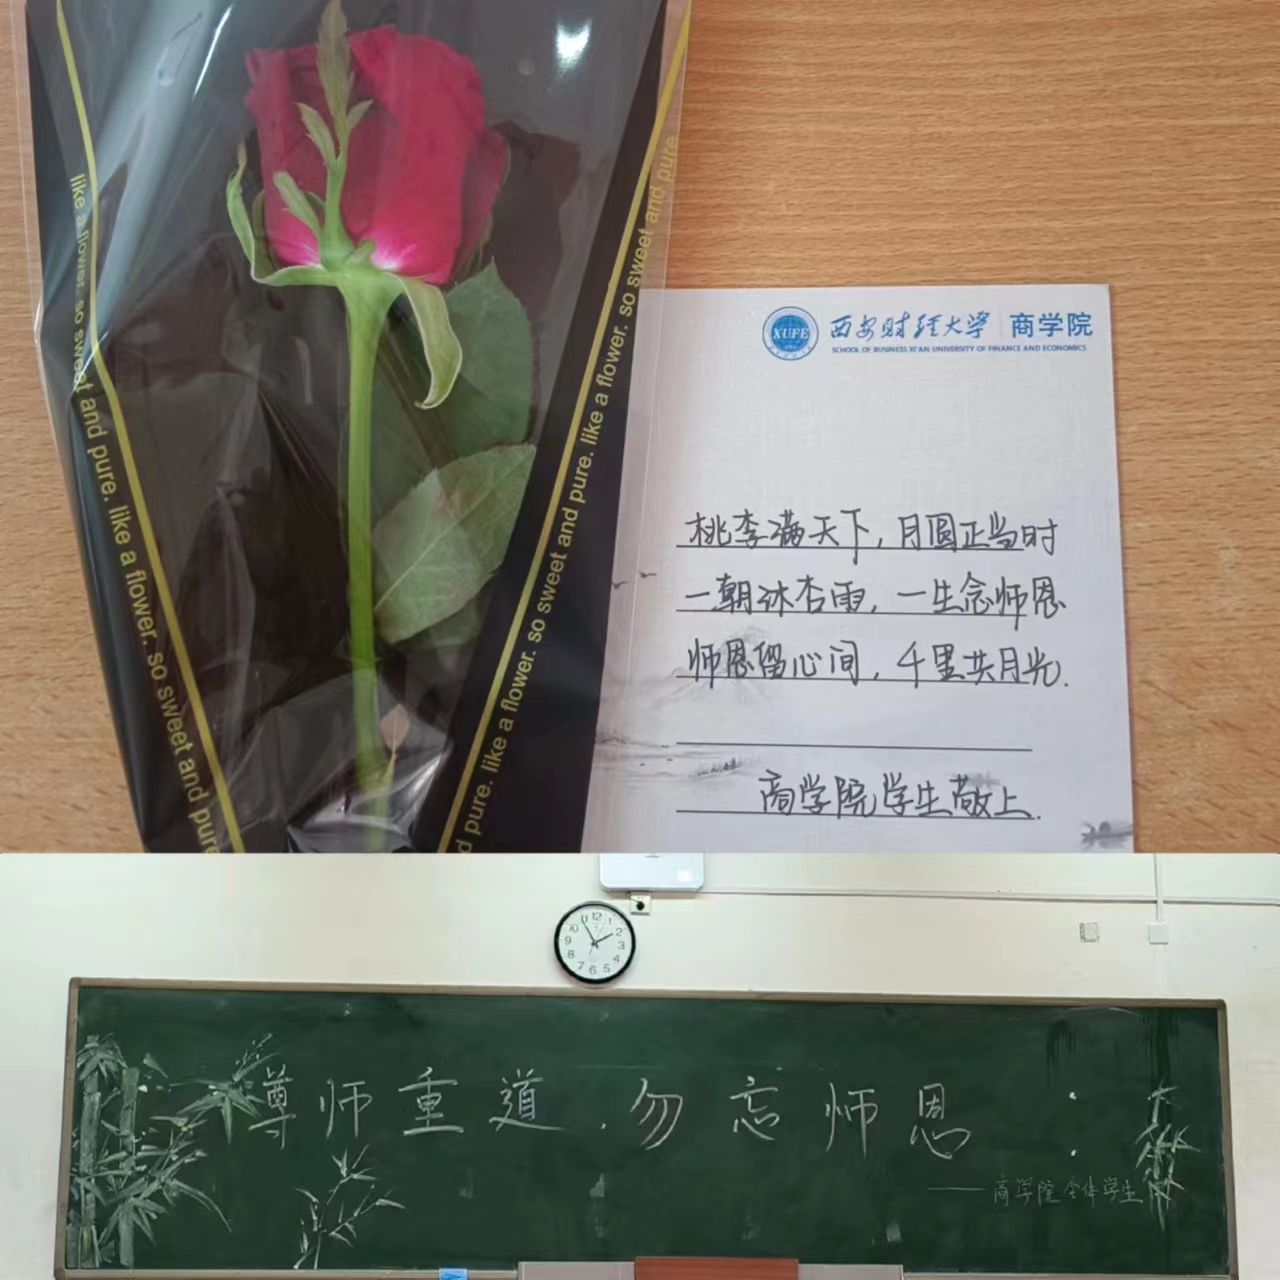 like a flower. so sweet and pure. like a flower. so sweet and pure
so sweet and pure. like a flower. so sweet and pure. like a flower. so sweet and pure
XUFE
西安财经大学 商学院
SCHOOL OF BUSINESS XI'AN UNIVERSITY OF FINANCE AND ECONOMICS
桃李满天下，月圆正当时
一朝沐杏雨，一生念师恩
师恩留心间，千里共月光.
商学院学生敬上.
12
1
2
3
4
5
6
7
8
9
10
尊师重道 . 勿忘师恩
——商学院全体学生